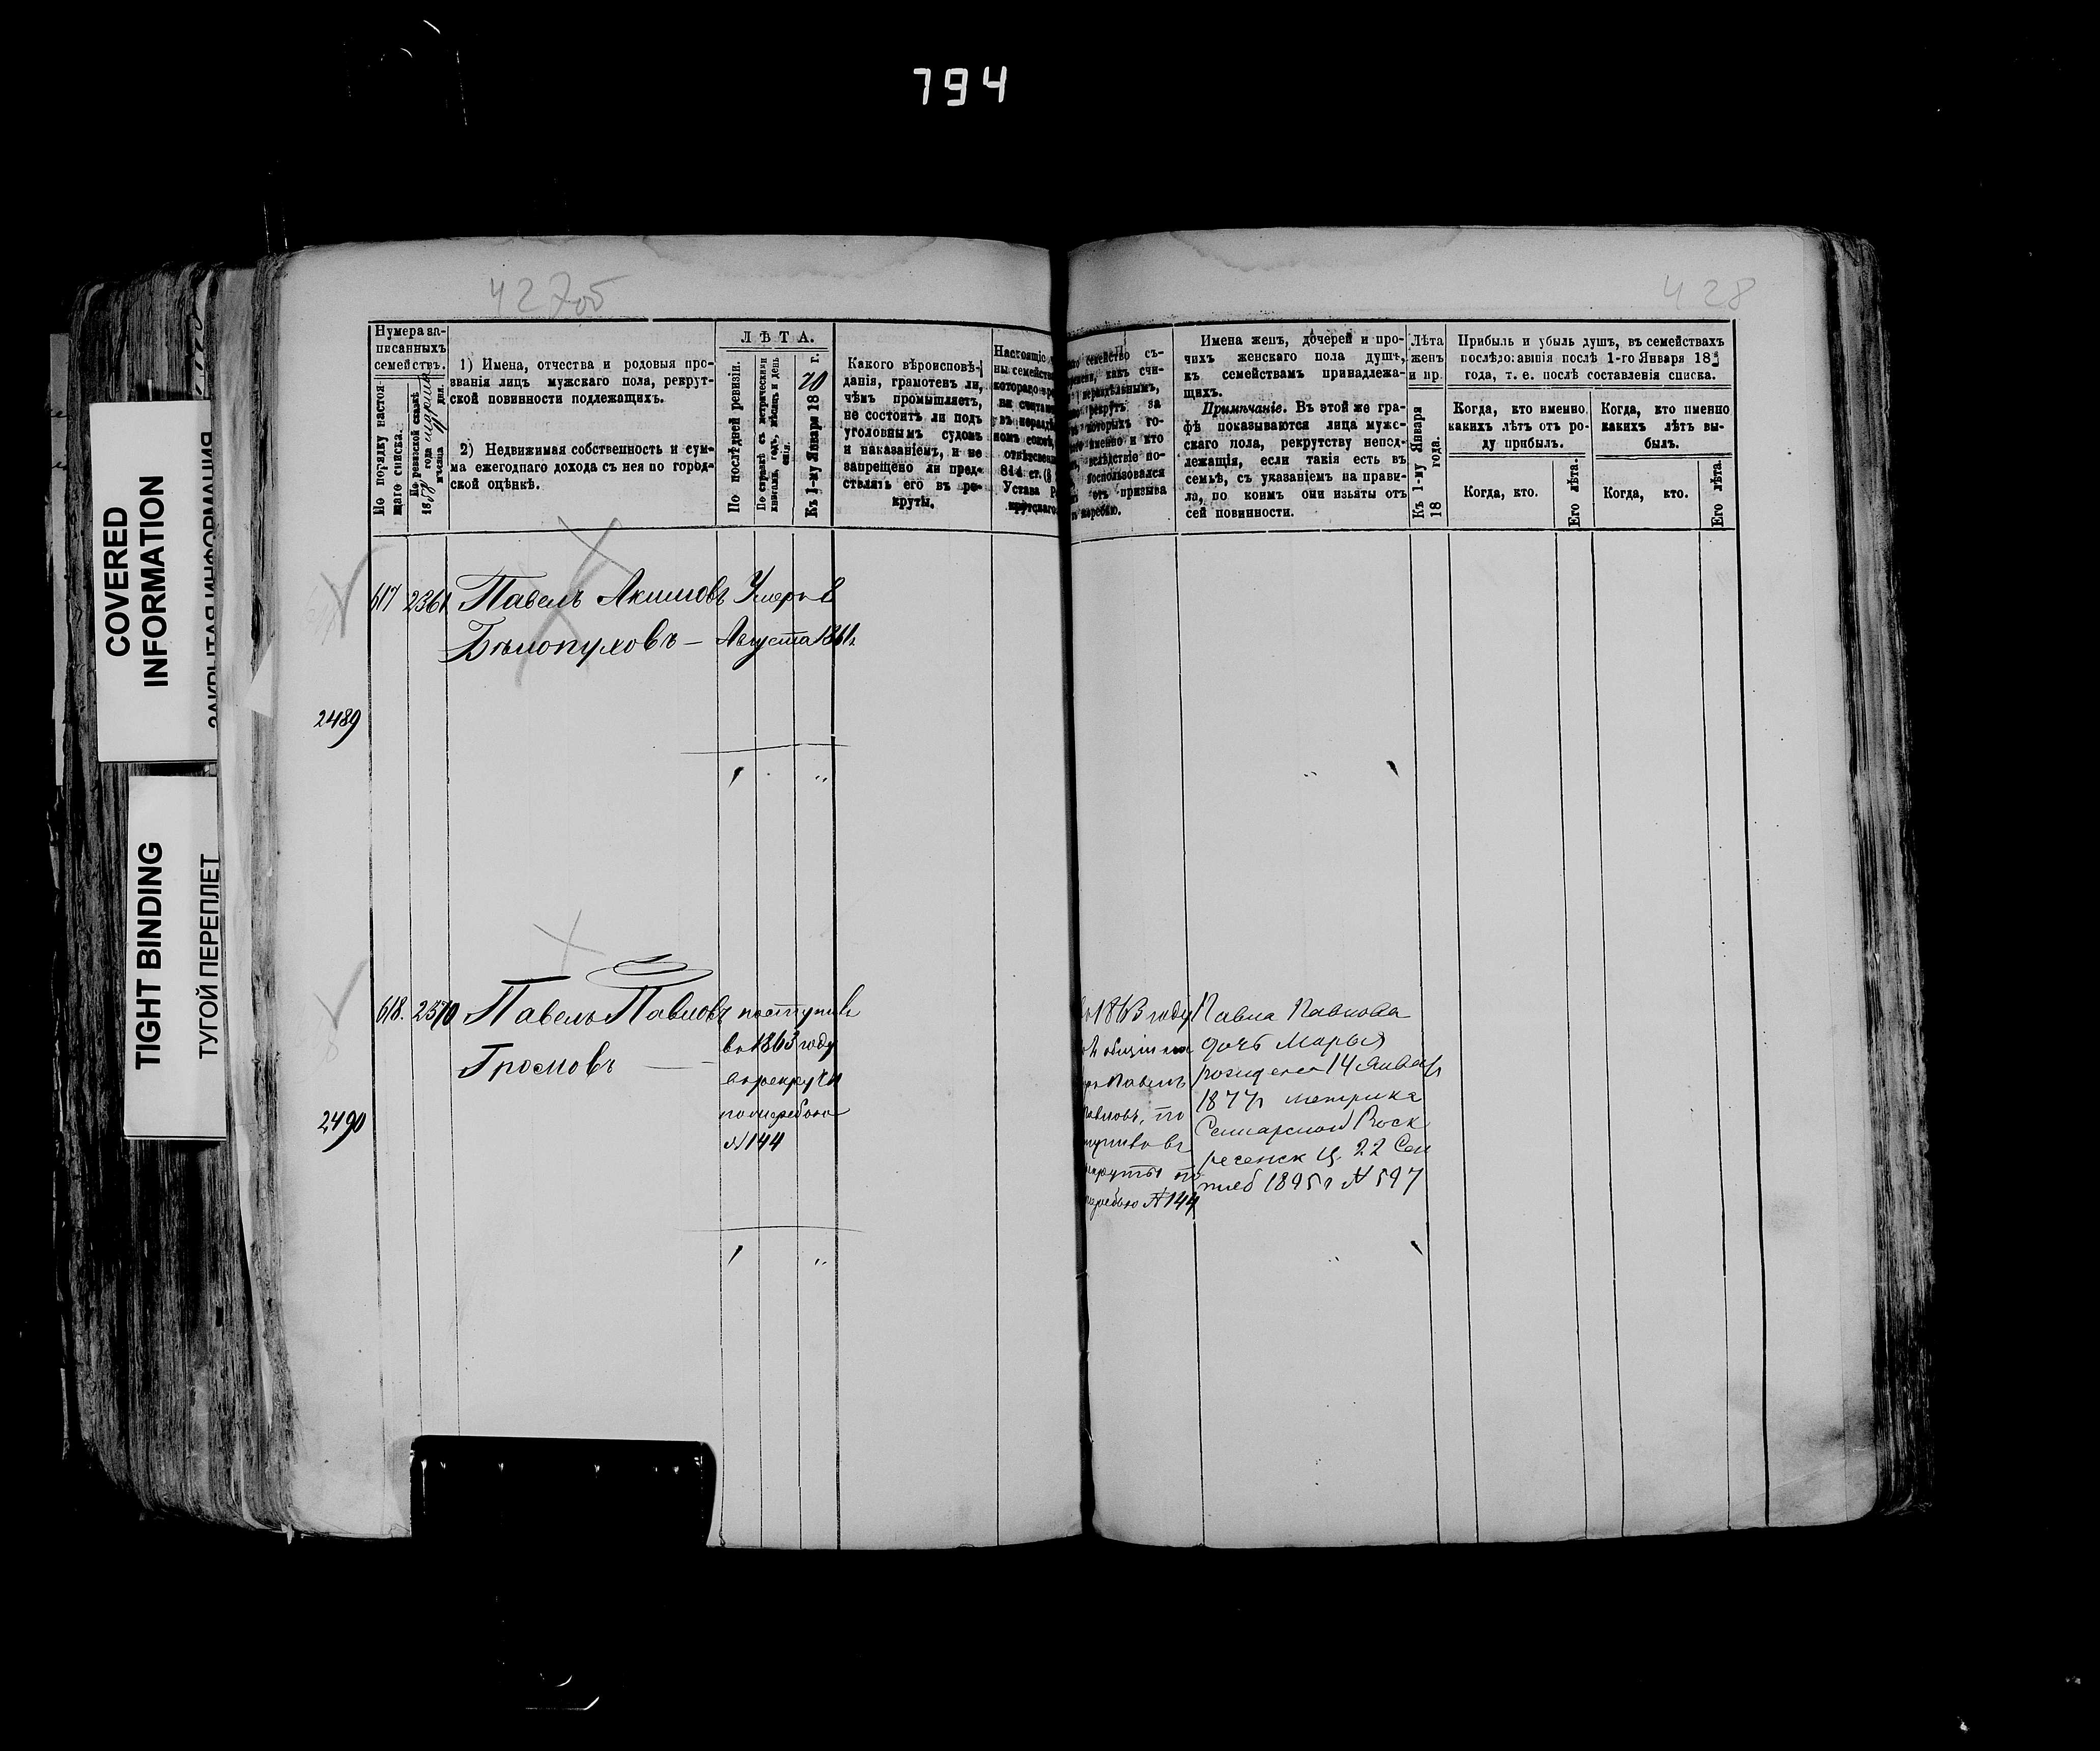 794
COVERED
INFORMATION
ЗАКРЫТАЯ ИНФОРМАЦИЯ
TIGHT BINDING
ТУГОЙ ПЕРЕПЛЕТ
427об
428
Нумера за-
писанныхъ
семействъ.
По порядку настоя-
щаго списка.
По ревизской сказкѣ
года
мѣсяца дня.
1) Имена, отчества и родовыя про-
званія лицъ мужскаго пола, рекрут-
ской повинности подлежащихъ.
2) Недвижимая собственность и сум-
ма ежегоднаго дохода съ нея по город-
ской оцѣнкѣ.
ЛѢТА.
По послѣдней ревизіи.
По справкѣ съ метрическими
книгами, годъ, мѣсяцъ и день
Къ 1-му Января 1870 г.
Какого вѣроисповѣ-
данія, грамотенъ ли,
чѣмъ промышляетъ,
не состоитъ ли подъ
уголовнымъ судомъ
и наказаніемъ, и не
запрещено ли пред-
ставлять его въ ре-
круты.
Настоящіе
ны семейств
котораго вре
ви считаю
въ нераздѣ
номъ союзѣ,
814 ст. (§
Устава Р
крутскаго
семейство съ-
какъ счи-
нераздѣльнымъ,
рекрутъ за
которыхъ го-
именно и кто
вслѣдствіе по-
воспользовался
отъ призыва
жеребью.
Имена женъ, дочерей и про-
чихъ женскаго пола душъ,
къ семействамъ принадлежа-
щихъ.
Примѣчаніе. Въ этой же гра-
фѣ показываются лица муж-
скаго пола, рекрутству непод-
лежащія, если такія есть въ
семьѣ, съ указаніемъ на прави-
ла, по коимъ они изъяты отъ
сей повинности.
Лѣта
женъ
и пр.
Къ 1-му Января
18 года.
Прибыль и убыль душъ, въ семействахъ
послѣдовавшія послѣ 1-го Января 18
года, т. е. послѣ составленія списка.
Когда, кто именно
какихъ лѣтъ отъ ро-
ду прибылъ.
Когда, кто именно
какихъ лѣтъ вы-
былъ.
Когда, кто.
Его лѣта.
Когда, кто.
Его лѣта.
617 2361 Павелъ Акимовъ Умеръ 8
Бѣлопуховъ — Августа 1861г
2489
618. 2370 Павелъ Павловъ поступилъ
во 1863 году
Громовъ —
въ рекруты
по жеребью
№ 144
2490
1863 году
Павелъ
Павловъ, по
ступилъ въ
рекруты по
жеребью № 144
Павла Павлова
дочь Марья
рождена 14 Января
1877г метрика
Самарской Воск
ресенск ц. 22 Сен
тяб 1895г № 597